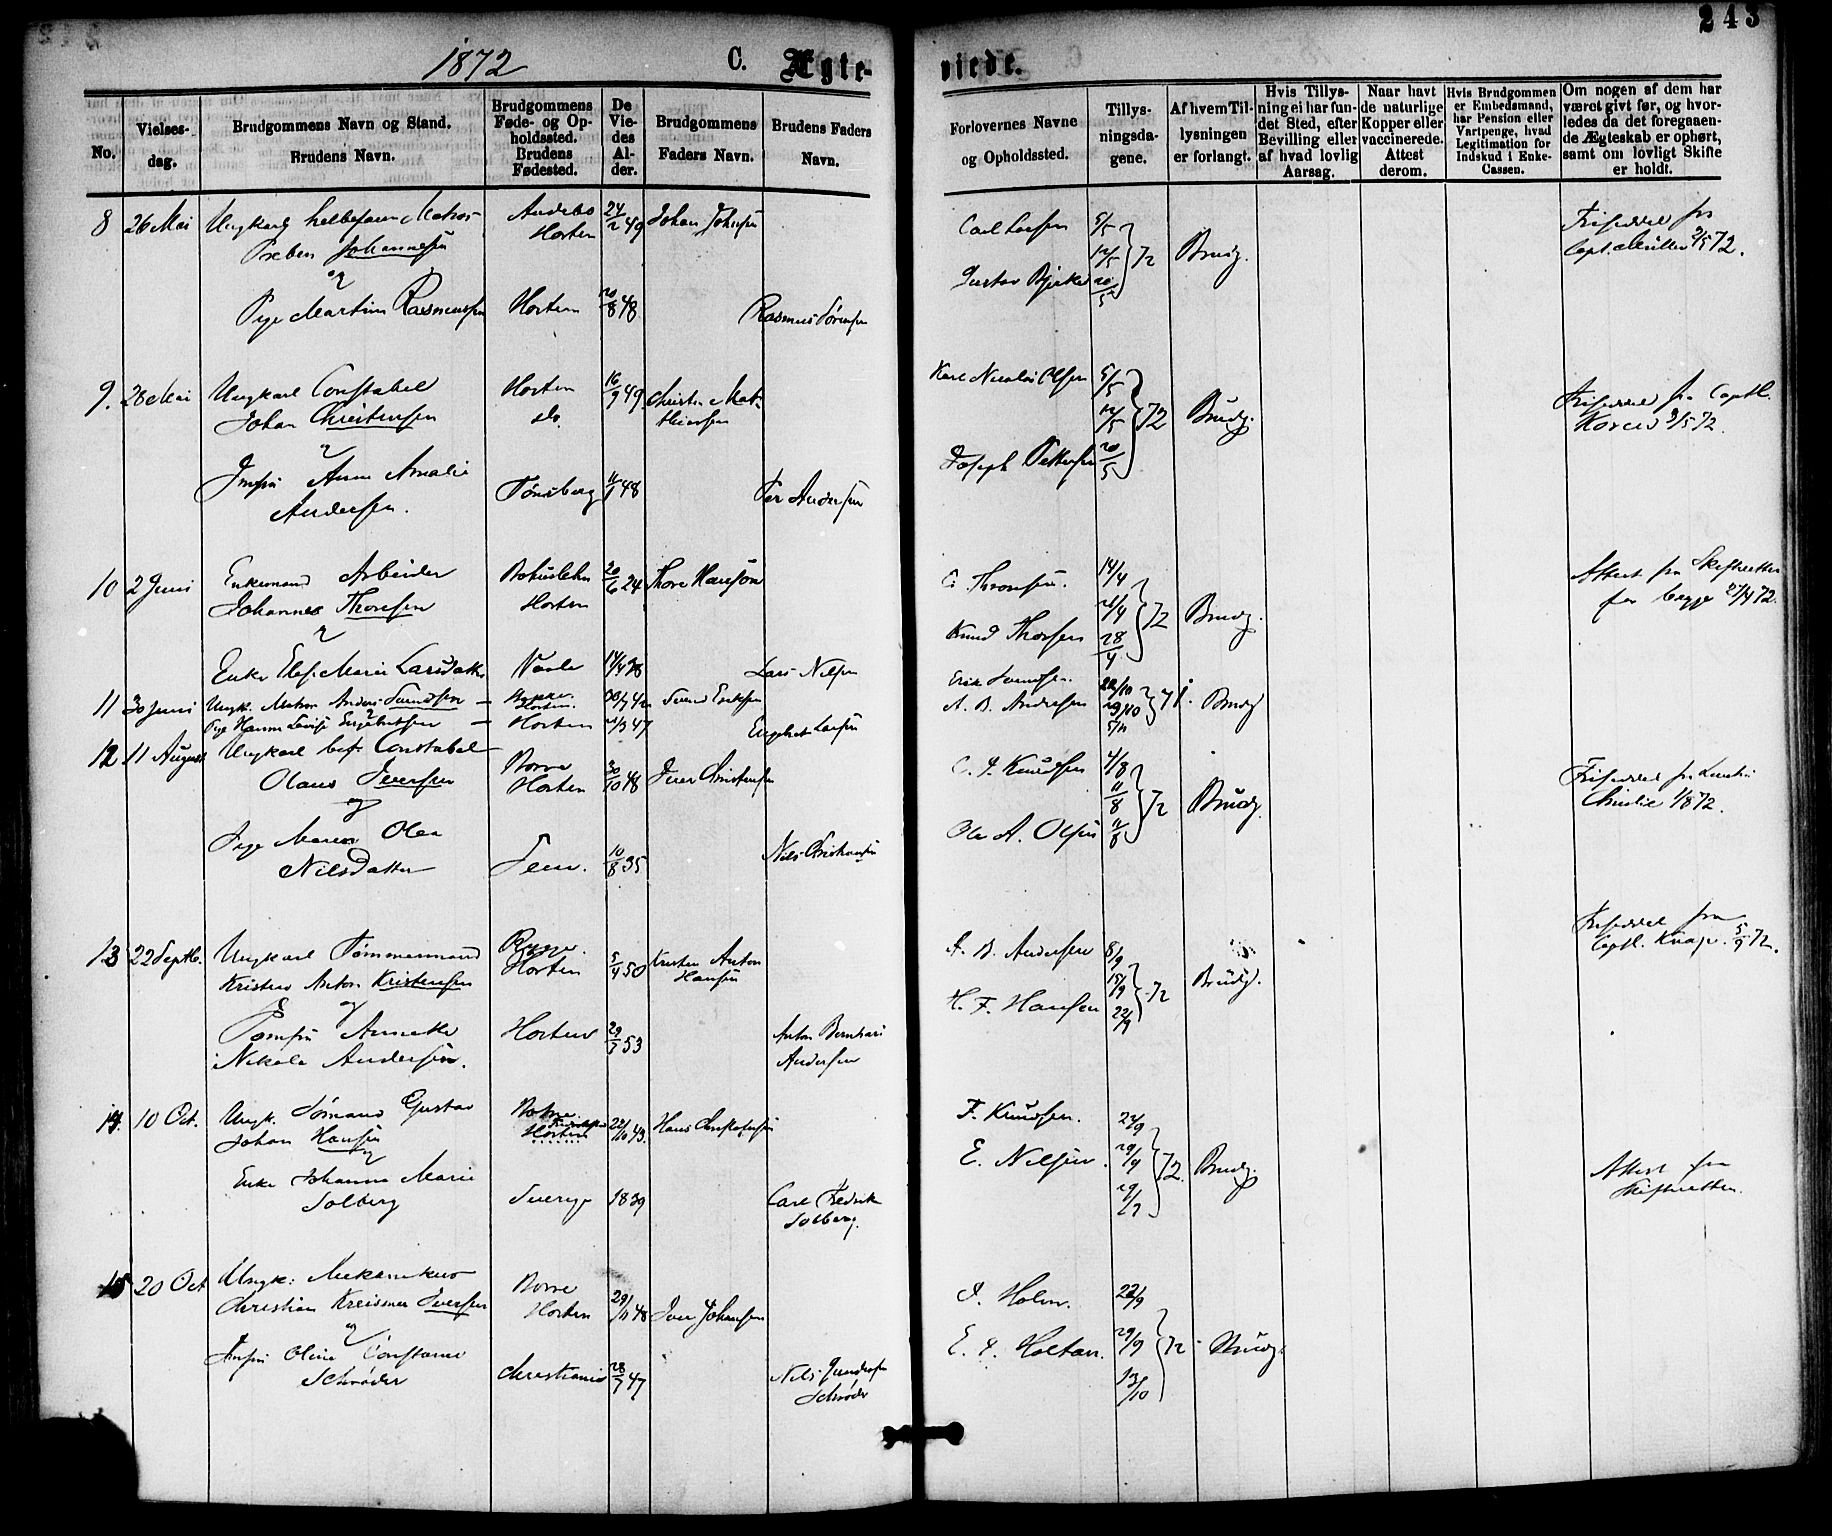 243
1872 C. Ægte-
viede.
No.
Vielses-
dag.
Brudgommens Navn og Stand.
Brudens Navn.
Brudgommens
Føde- og Op-
holdssted.
Brudens
Fødested.
De
Vie-
des
Al-
der.
Brudgommens
Faders Navn.
Brudens Faders
Navn.
Forlovernes Navne
og Opholdssted.
Tillys-
ningsda-
gene.
Af hvem Til-
lysningen
er forlangt.
Hvis Tillys-
ning ei har fun-
det Sted, efter
Bevilling eller
af hvad lovlig
Aarsag.
Naar havt
de naturlige
Kopper eller
vaccinerede.
Attest
derom.
Hvis Brudgommen
er Embedsmand,
har Pension eller
Vartpenge, hvad
Legitimation for
Indskud i Enke-
Cassen.
Om nogen af dem har
været givt før, og hvor-
ledes da det foregaaen-
de Ægteskab er ophørt,
samt om lovligt Skifte
er holdt.
8 26 Mai Ungkarl Matros Andebo 24/2 49 Johan Johnsen
Preben Johannesen Horten
og
Pige Martine Rasmussen Horten 20/8 48 Rasmus Sørensen
Carl Larsen 5/5
12/5 72 Brudg.
Gustav Bjerke 20/5
Friseddel fra
Capt. Müller 2/5 72.
9. 26 Mai Ungkarl Constabel Horten 16/9 49 Christen Mat-
Johan Christensen do. thiesen
og
Jmfru Anne Amalie Tønsberg 11/1 48 Per Andersen
Andersen.
Karl Nicolai Olsen 5/5
12/5 72 Brudg.
Joseph Pettersen 20/5
Friseddel fra Captl.
3/5 72.
10 2 Juni Enkemand Arbeider Bohuslehn 20/6 24 Thore Hansson
Johannes Thoresen Horten
og
Enke Else Marie Larsdatter Vaale 14/4 38 Lars Nilsen
C. Thronsen. 14/4
21/4 72 Brudg.
Knud Thorsen 28/4
Attest fra Skifteretten
for begge 27/4 72.
11 30 Juni Ungk. Matros Anders Svendsen Horten. Svend Eriksen
Pige Hanna Lovise Engebretsen Horten 21/3 47 Engebret Larsen
Erik Svendsen 22/10
A. B. Andersen 29/10 71. Brudg
5/11
12 11 August Ungkarl bef. Constabel Borre 30/10 48 Iver Christensen
Olaus Iversen Horten
og
Pige Maren Olea
Nilsdatter Sem. 10/8 35 Nils Christiansen
C. A. Knudsen 4/8
11/8 72 Brudg.
Ole A. Olsen 11/8
Friseddel fra
Christie 1/8 72.
13 22 Septb. Ungkarl Tømmermand Rygge 5/4 50 Kristen Anton
Kristen Anton Kristensen Horten Hansen
og
Jomfru Annette Horten 29/7 53 Anton Bernhard
Nikola Andersen. Andersen
A. B. Andersen 8/9
15/9 72 Brudg.
H. F. Hansen 22/9
Friseddel fra
Captl. Knap. 5/9 72.
14. 10 Oct. Ungk. Sømand Gustav Botne. 22/10 43. Hans Christophersen
Johan Hansen Horten
og
Enke Johanne Marie
Solberg Sverige 1839 Carl Fredrik
Solberg.
F. Knudsen. 22/9
E. Nilsen. 29/9 72. Brudg.
Attest fra
Skifteretten.
15 20 Oct Ungk: Mekanikus Borre
Christian Iversen Horten 29/11 48 Iver Johansen
og
Jmfru Oline Constance
Schrøder Christiania 28/7 47 Nils Gundersen
Schrøder
A. Holm. 22/9
E. A. Holtan. 29/9 72 Brudg.
13/10